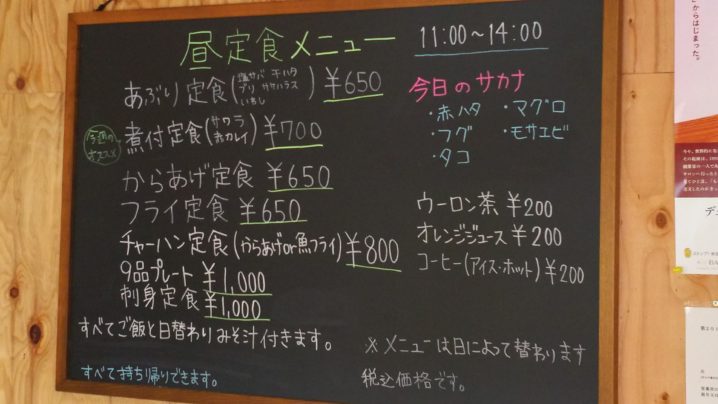 昼定食メニュー
11:00～14:00
あぶり定食(塩サバ ホハタ ブリ ササハラス いわし) ¥650
今週のオススメ
煮付定食(サワラ 赤カレイ) ¥700
からあげ定食 ¥650
フライ定食 ¥650
チャーハン定食(からあげor魚フライ) ¥800
9品プレート ¥1,000
刺身定食 ¥1,000
すべてご飯と日替わりみそ汁付きます。
すべて持ち帰りできます。
今日のサカナ
・赤ハタ ・マグロ
・フグ ・モサエビ
・タコ
ウーロン茶 ¥200
オレンジジュース ¥200
コーヒー(アイス・ホット) ¥200
※メニューは日によって替わります
税込価格です。
からはじまった。